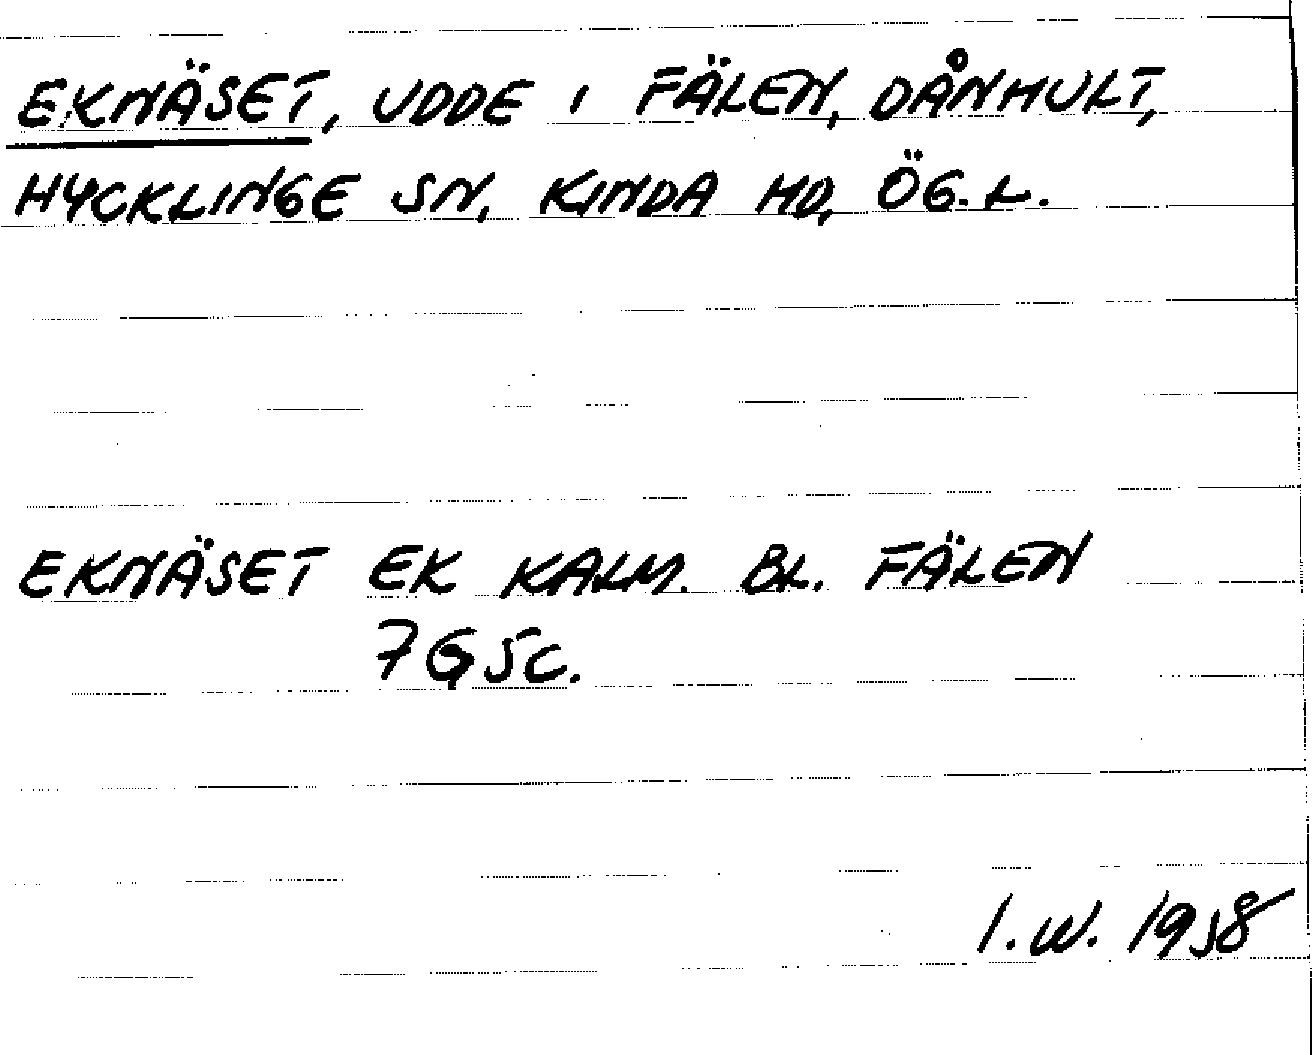 EKNÄSET, UDDE I FÄLEN, DÅNHULT,
HYCKLINGE SN, KINDA HD, ÖG.L.
EKNÄSET EK KALM. BL. FÄLEN
7G5C.
I.W. 1958